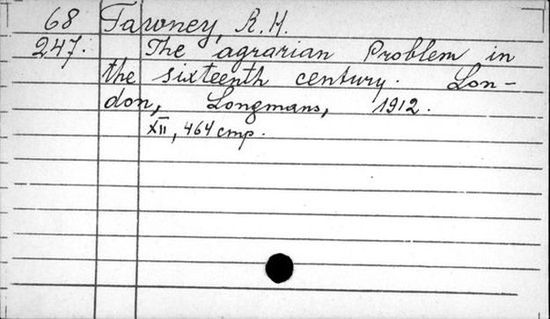 68 Tawney, R. H.
247. The agrarian Problem in
the sixteenth century. Lon-
don, Longmans, 1912.
XII, 464 стр.